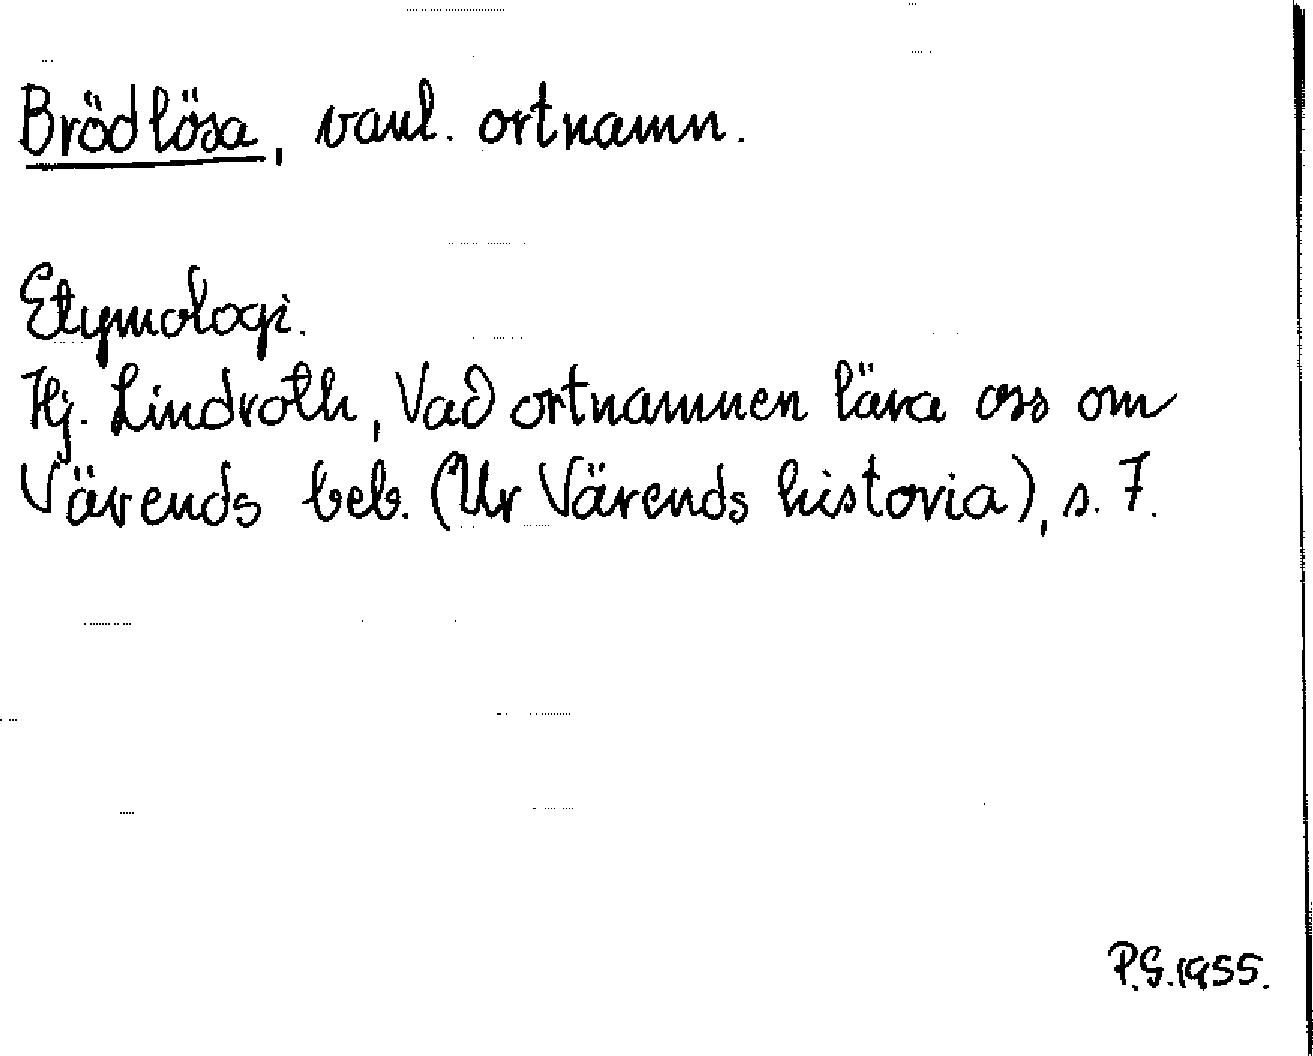 Brödlösa, vanl. ortnamn.
Etymologi.
Hj. Lindroth, Vad ortnamnen lära oss om
Värends beb. (Ur Värends historia), s. 7.
P.G. 1955.